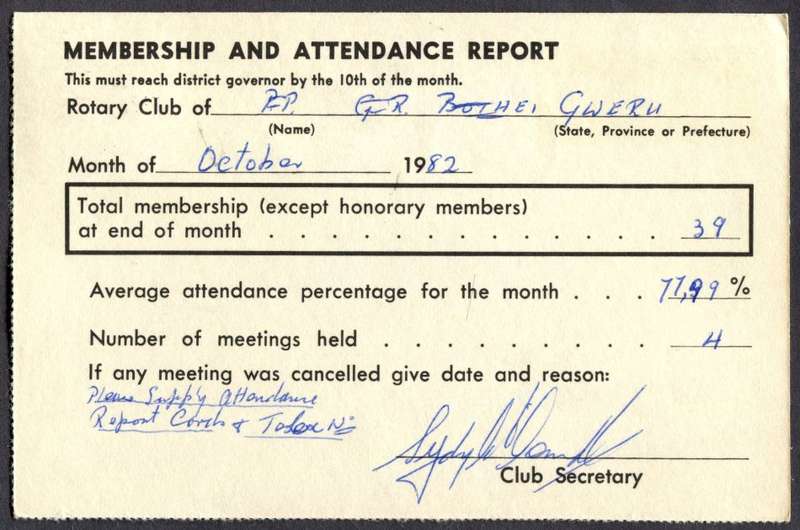 MEMBERSHIP AND ATTENDANCE REPORT
This must reach district governor by the 10th of the month.
Rotary Club of P.P. GWERU
(Name) (State, Province or Prefecture)
Month of October 1982
Total membership (except honorary members)
at end of month . . . . . . . . . . . . 39
Average attendance percentage for the month . . . 77,99 %
Number of meetings held . . . . . . . . . 4
If any meeting was cancelled give date and reason:
Please Supply Attendance
Report Cards & Telex No
Club Secretary